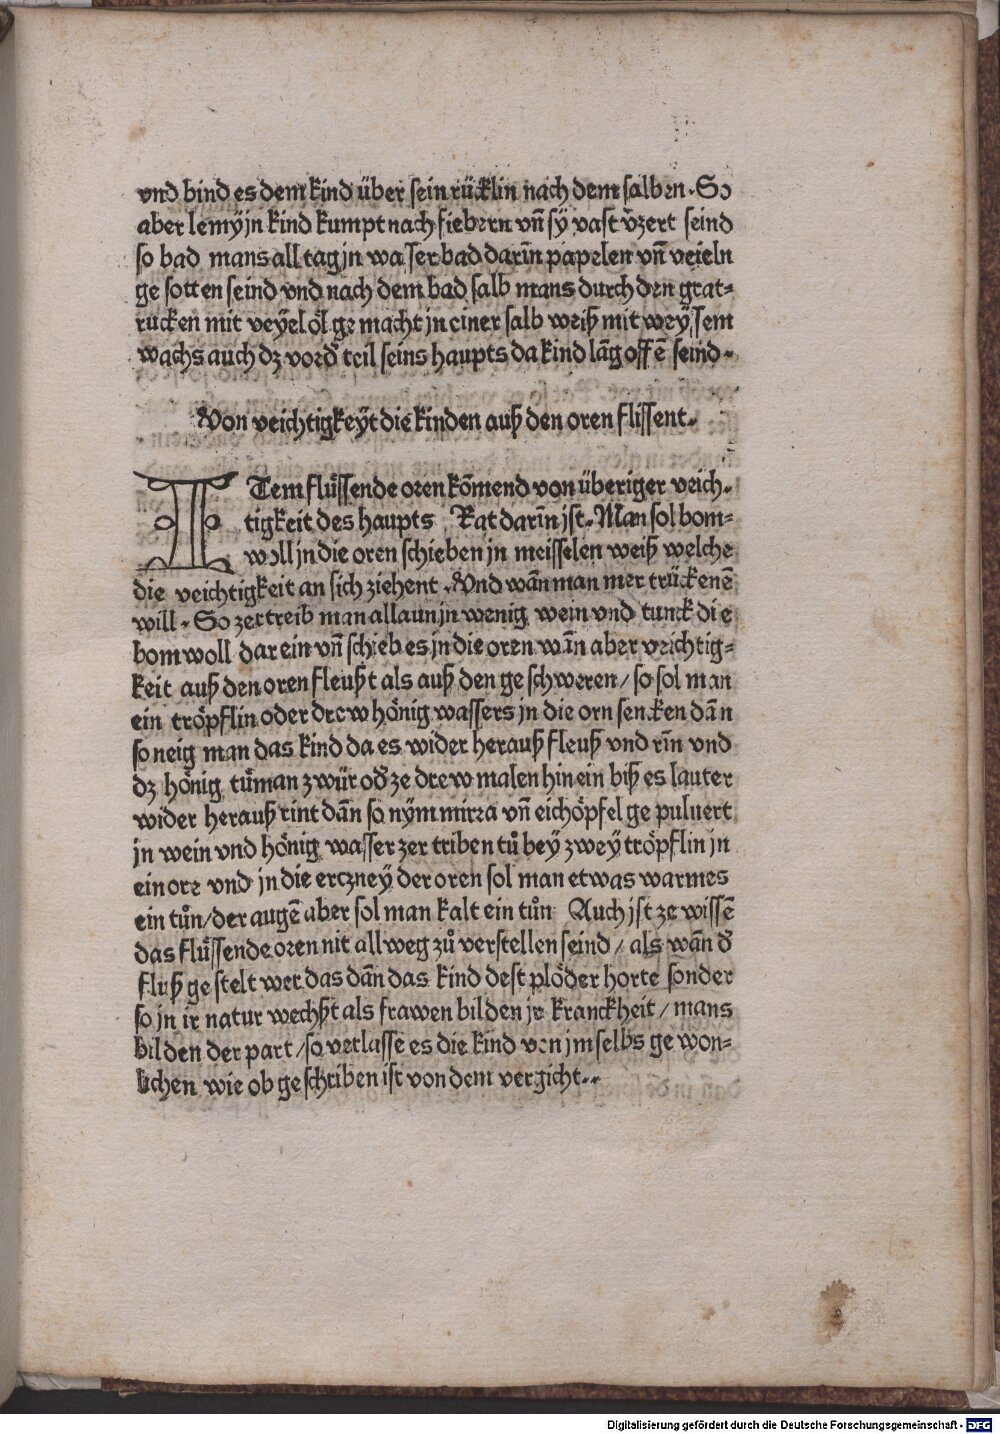 vnd bind es dem kind über sein rücklin nach dem salben. So
aber lemÿ jn kind kumpt nach fiebern vñ sÿ vast v̈zert seind
so bad mans all tag jn wasser bad darīn papelen vñ veieln
ge sotten seind vnd nach dem bad salb mans durch den grat⸗
rucken mit veÿel öl ge macht jn einer salb weiß mit weÿssem
wachs auch dz vord̕ teil seins haupts da kind lāg offē seind.
Von veichtigkeÿt die kinden auß den oren flissent.
ITem flüssende oren kōmend von überiger veich⸗
tigkeit des haupts Rat darīn jst. Man sol bom⸗
woll jn die oren schieben jn meisselen weiß welche
die veichtigkeit an sich ziehent. Vnd wān man mer trückenē
will. So zertreib man allaun jn wenig wein vnd tunck die
bomwoll darein vñ schieb es jn die oren wān aber veichtig⸗
keit auß den oren fleußt als auß den geschweren / so sol man
ein tröpflin oder drew hönig wassers jn die orn sencken dān
so neig man das kind da es wider herauß fleuß vnd rīn vnd
dz hönig tůman zwür od̕ ze drew malen hinein biß es lauter
wider herauß rint dān so nÿm mirra vñ eichöpfel ge puluert
jn wein vnd hönig wasser zer triben tů bey zwey tröpflin jn
ein ore vnd jn die erczneÿ der oren sol man etwas warmes
ein tůn / der augē aber sol man kalt ein tůn Auch jst ze wissē
das flüssende oren nit allweg zů verstellen seind / als wān d̕
fluß ge stelt wer das dān das kind dest plöder horte sonder
so jn ir natur wechßt als frawen bilden jr kranckheit / mans
bilden der part / so verlasse es die kind von jm selbs ge won⸗
lichen wie ob geschriben ist von dem vergicht..
Digitalisierung gefördert durch die Deutsche Forschungsgemeinschaft - DFG